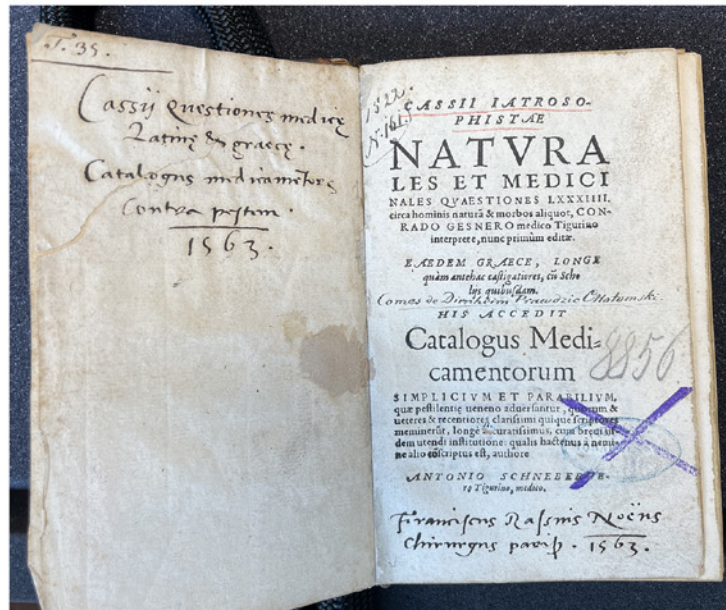 T. 35.
Cassij Questiones medicę
Latinę & graecę.
Catalogus medicamētorū
Contra pestem.
1563.
1522.
N. 161.
CASSII IATROSO-
PHISTAE
NATVRA
LES ET MEDICI
NALES QVAESTIONES LXXXIIII.
circa hominis naturā & morbos aliquot, CON-
RADO GESNERO medico Tigurino
interprete, nunc primùm editæ.
EÆDEM GRAECE, LONGE
quàm antehac castigatiores, cū Scho
lijs quibusdam.
Comes de Prawdzic
HIS ACCEDIT
Catalogus Medi-
camentorum
8856
SIMPLICIVM ET PARABILIVM,
quæ pestilentiæ veneno aduersantur, quorum &
ueteres & recentiores clarissimi quique scriptores
meminerūt, longè accuratissimus, cum breui ui-
dem utendi institutione: qualis hactenus à nemi-
ne alio cōscriptus est, authore
ANTONIO SCHNEBERGE-
ro Tigurino, medico.
Franciscus Rassius Noëns
Chirurgus . 1563.